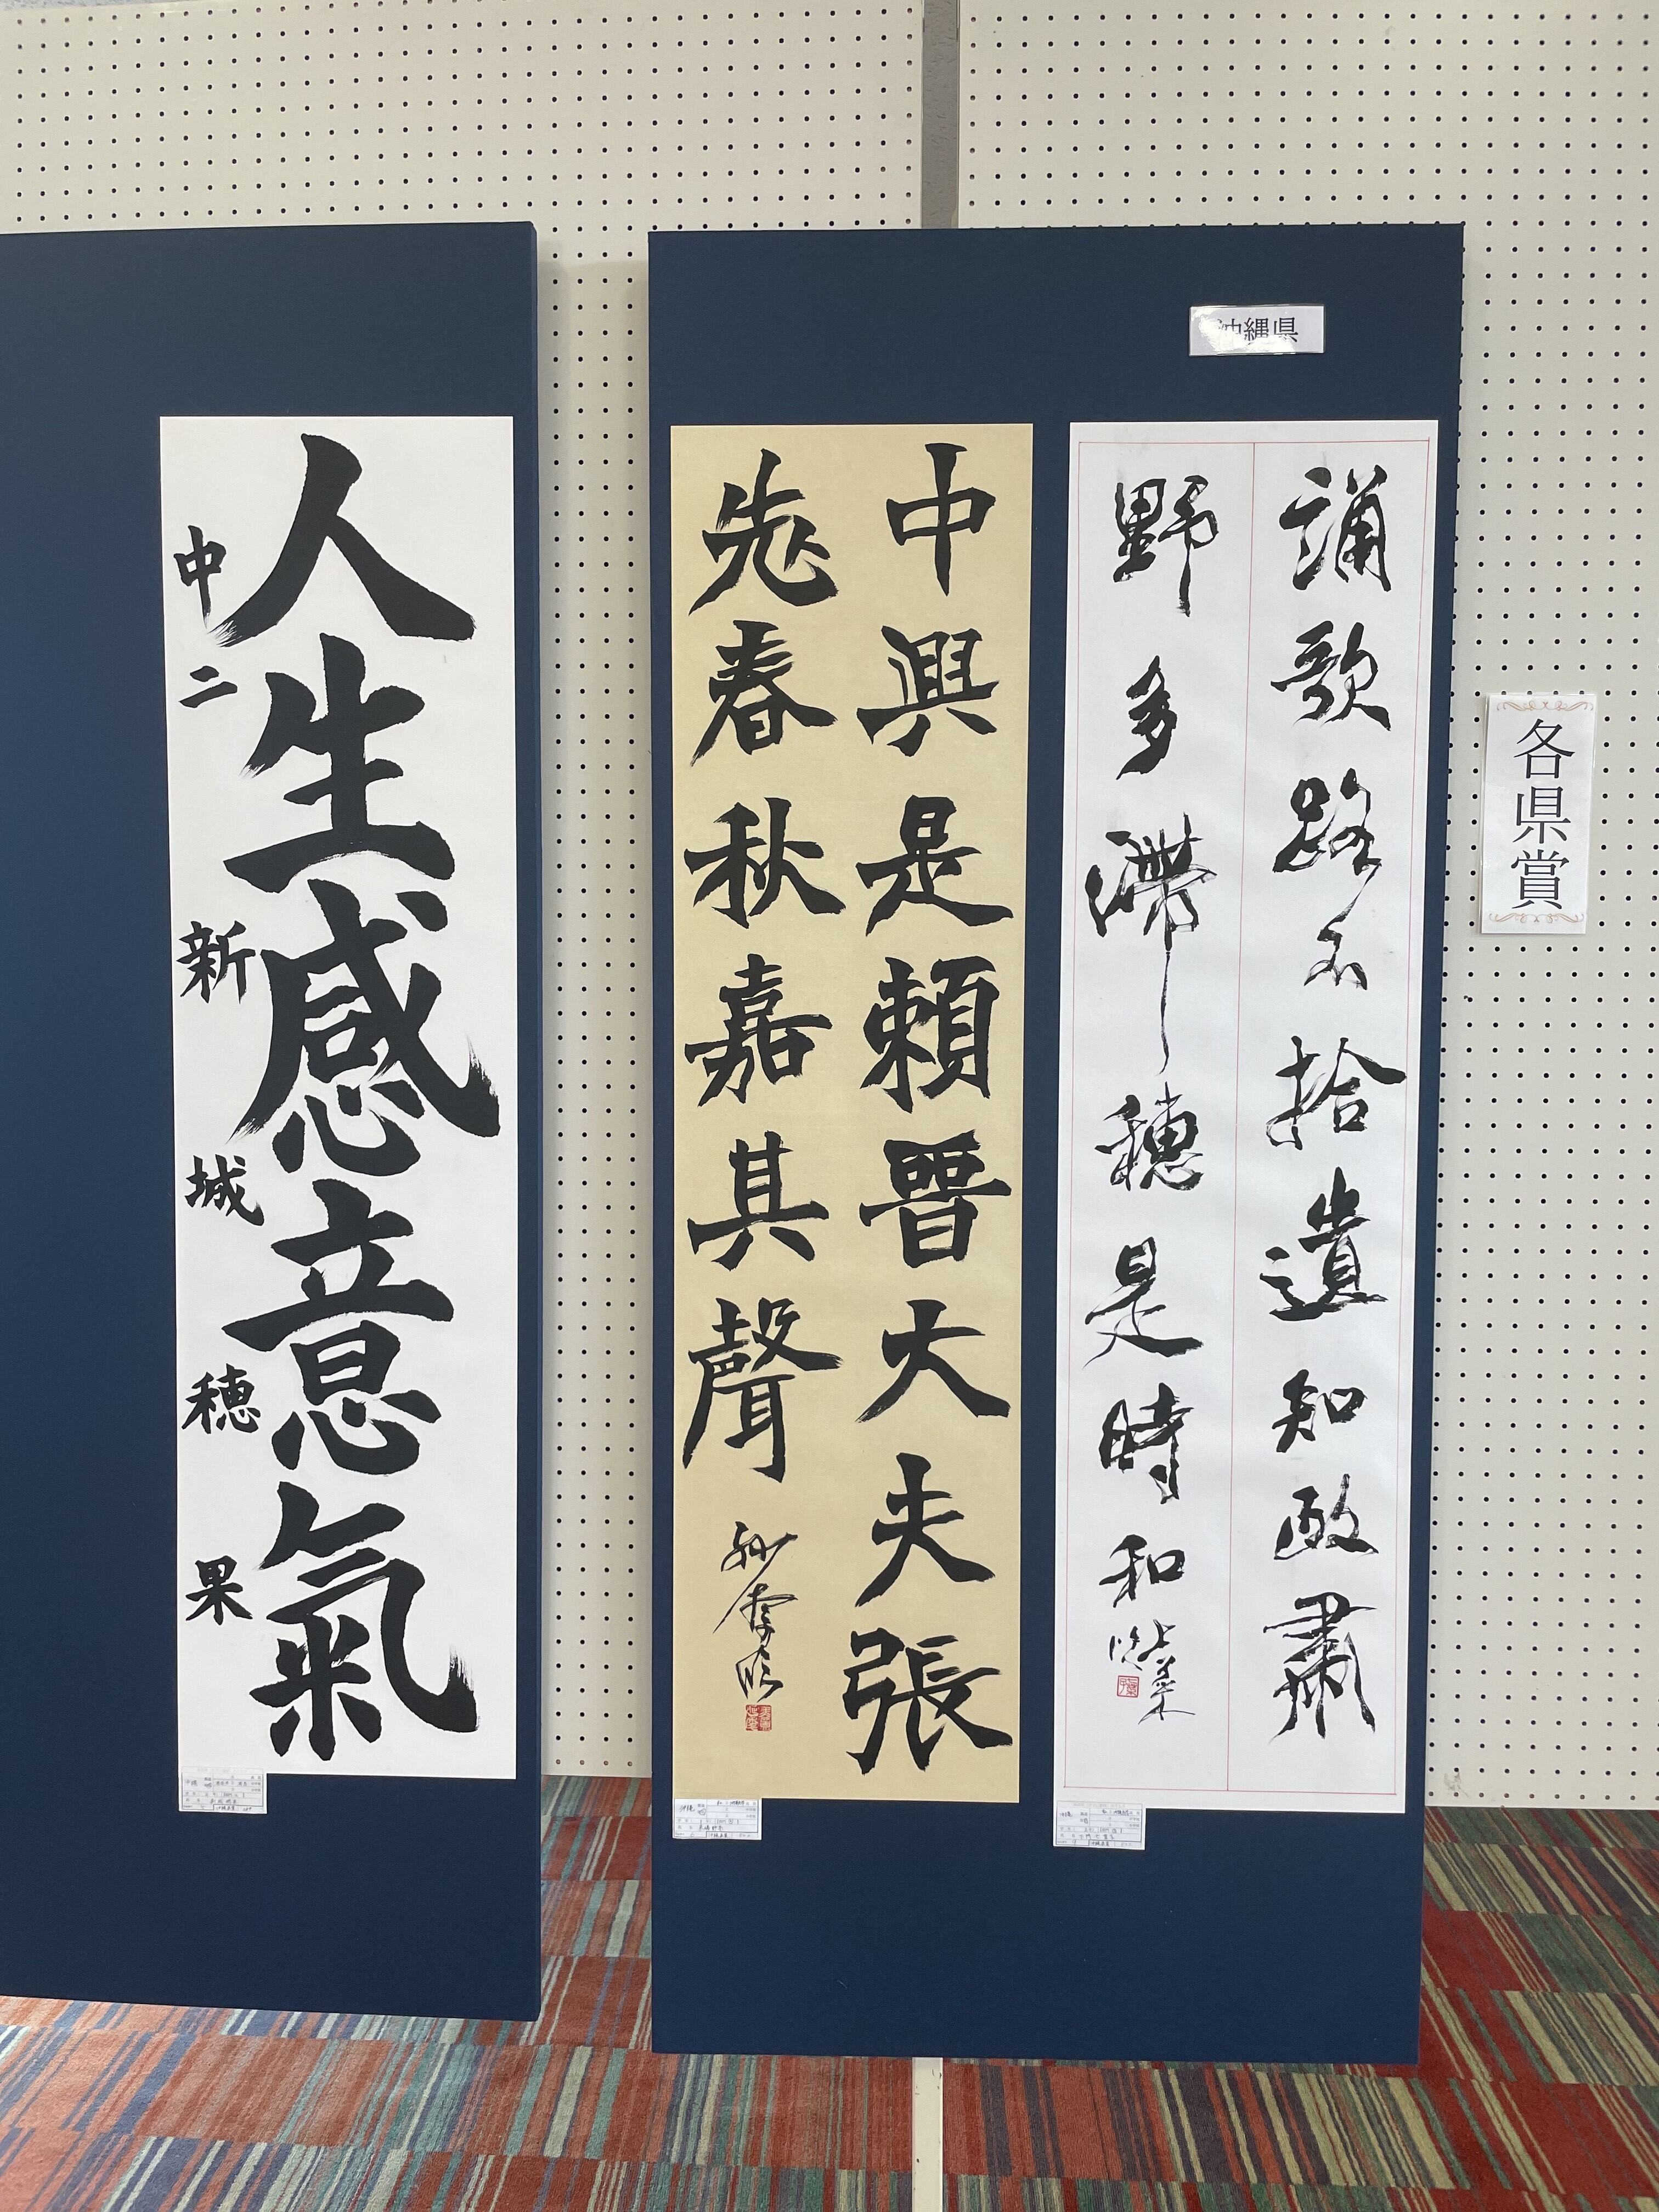 各県賞
沖縄県
誦歌路不拾遺知政肅
野多滞穗是時和
中興是頼晉大夫張
先春秋嘉其聲
人生感意氣
中二 新城穂果